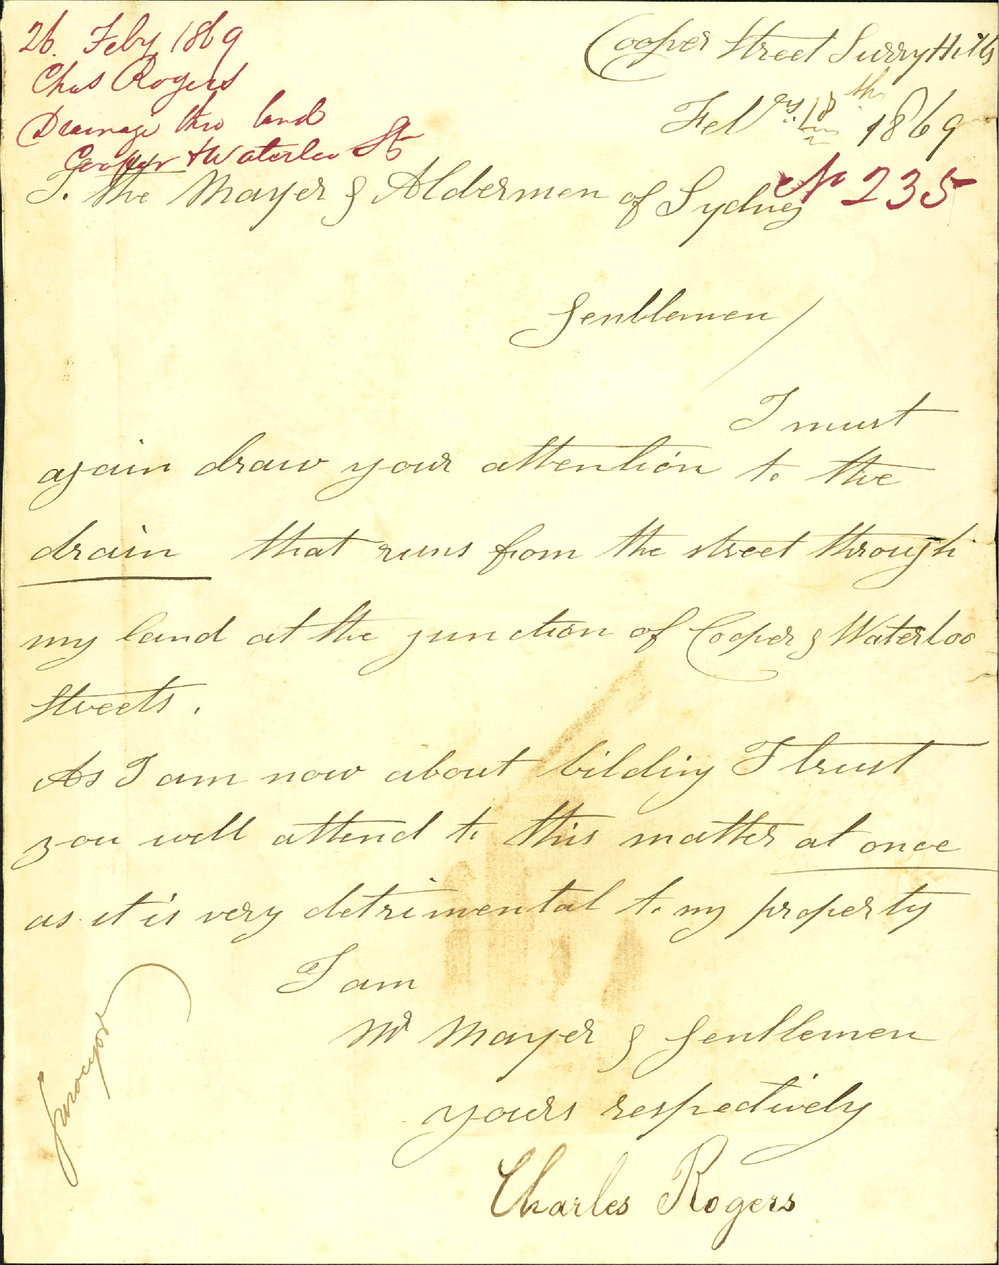 26 Feby 1869
Chas Rogers
Drainage thro land
Cooper & Waterloo St
Cooper Street Surry Hills
Febry 18th 1869
No 235
To the Mayer & Aldermen of Sydney
Gentlemen/
I must
again draw your attention to the
drain that runs from the street through
my land at the junction of Cooper & Waterloo
Streets.
As I am now about bilding I trust
you will attend to this matter at once
as it is very detrimental to my property
I am
Mr Mayer & Gentlemen
yours respectively
Charles Rogers